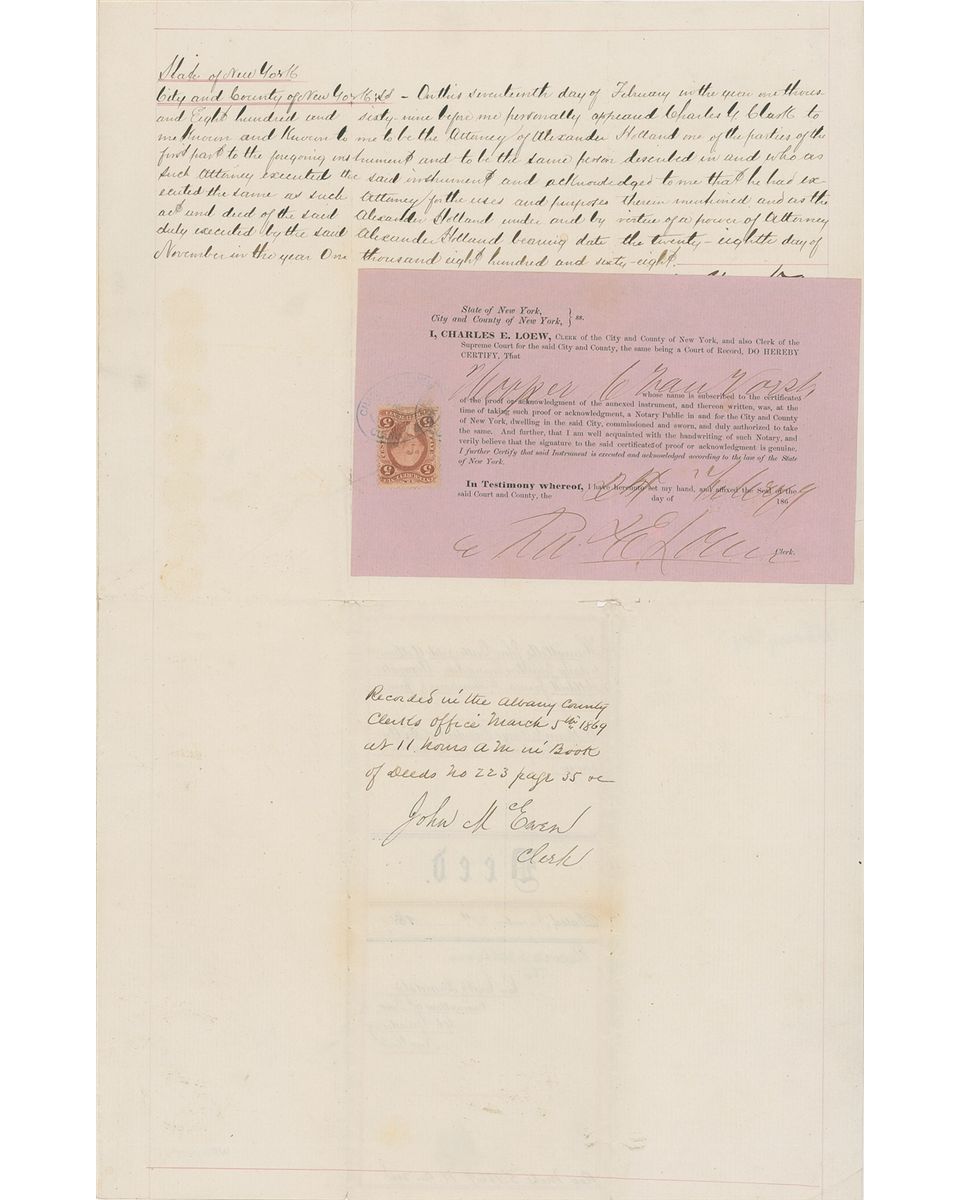 State of New York
City and County of New York ss – On this seventeenth day of February in the year one thous
and Eight hundred and sixty-nine before me personally appeared Charles G. Clark to
me known and known to me to be the Attorney of Alexander Holland one of the parties of the
first part to the foregoing instrument and to be the same person described in and who as
such Attorney executed the said instrument and acknowledged to me that he had ex-
ecuted the same as such Attorney for the uses and purposes therein mentioned and as the
act and deed of the said Alexander Holland under and by virtue of a power of Attorney
duly executed by the said Alexander Holland bearing date the twenty-eighth day of
November in the year One thousand eight hundred and sixty-eight.
State of New York,
City and County of New York, } ss.
I, CHARLES E. LOEW, CLERK of the City and County of New York, and also Clerk of the
Supreme Court for the said City and County, the same being a Court of Record, DO HEREBY
CERTIFY, That
Hopper
whose name is subscribed to the certificates
of the proof or acknowledgment of the annexed instrument, and thereon written, was, at the
time of taking such proof or acknowledgment, a Notary Public in and for the City and County
of New York, dwelling in the said City, commissioned and sworn, and duly authorized to take
the same. And further, that I am well acquainted with the handwriting of such Notary, and
verily believe that the signature to the said certificate of proof or acknowledgment is genuine,
I further Certify that said Instrument is executed and acknowledged according to the law of the State
of New York.
In Testimony whereof, I have hereunto set my hand, and affixed the Seal of the
said Court and County, the day of 1869
Chas E Loew Clerk.
5 5
Recorded in the Albany County
Clerks office March 5th 1869
at 11 hours A M in Book
of Deeds No 223 page 35 &c
John McEwen
Clerk
Deed